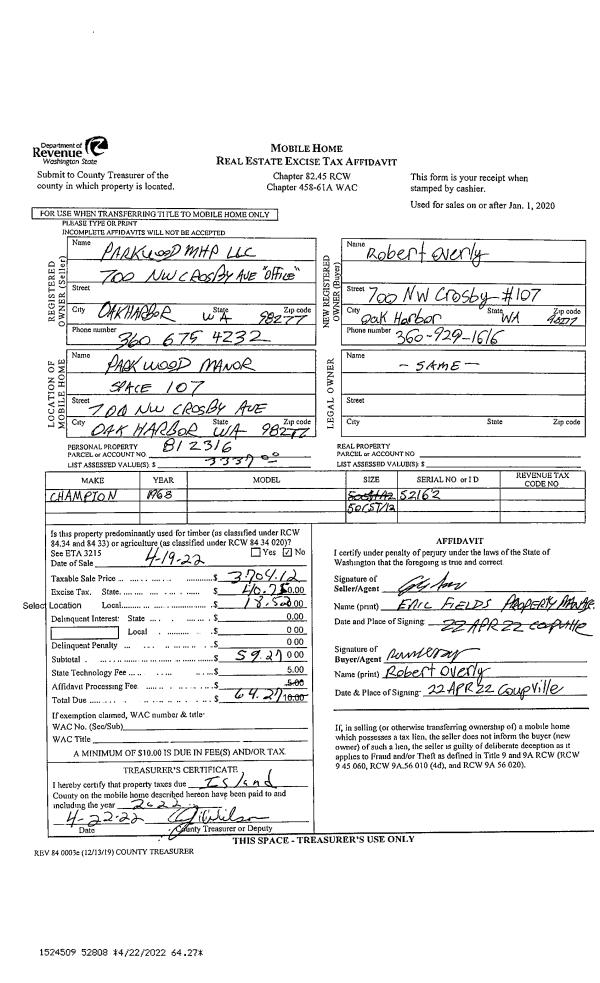 Department of
Revenue
Washington State
Submit to County Treasurer of the
county in which property is located.
MOBILE HOME
REAL ESTATE EXCISE TAX AFFIDAVIT
Chapter 82.45 RCW
Chapter 458-61A WAC
This form is your receipt when
stamped by cashier.
Used for sales on or after Jan. 1, 2020
FOR USE WHEN TRANSFERRING TITLE TO MOBILE HOME ONLY
PLEASE TYPE OR PRINT
INCOMPLETE AFFIDAVITS WILL NOT BE ACCEPTED
REGISTERED
OWNER (Seller)
Name PARKWOOD MHP LLC
700 NW CROSBY AVE "OFFICE"
Street
City OAK HARBOR State WA Zip code 98277
Phone number 360 675 4232
NEW REGISTERED
OWNER (Buyer)
Name Robert Overly
Street 700 NW Crosby #107
City Oak Harbor State WA Zip code
Phone number 360-929-1616
LOCATION OF
MOBILE HOME
Name PARKWOOD MANOR
SPACE 107
Street 700 NW CROSBY AVE
City OAK HARBOR State WA Zip code 98277
LEGAL OWNER
Name - SAME -
Street
City State Zip code
PERSONAL PROPERTY
PARCEL or ACCOUNT NO. 812316
LIST ASSESSED VALUE(S) $ 3337 00
REAL PROPERTY
PARCEL or ACCOUNT NO.
LIST ASSESSED VALUE(S) $
MAKE YEAR MODEL SIZE SERIAL NO or ID REVENUE TAX CODE NO
CHAMPION 1968 52162
Is this property predominantly used for timber (as classified under RCW
84.34 and 84 33) or agriculture (as classified under RCW 84 34 020)?
See ETA 3215 Yes ☑ No
Date of Sale 4-19-22
Taxable Sale Price $ 3704.12
Excise Tax. State $ 40.75 0.00
Select Location Local $ 18.52 0.00
Delinquent Interest: State $ 0.00
Local $ 0 00
Delinquent Penalty $ 0 00
Subtotal $ 59.27 0 00
State Technology Fee $ 5.00
Affidavit Processing Fee $ 5.00
Total Due $ 64.27 10.00
If exemption claimed, WAC number & title·
WAC No. (Sec/Sub)
WAC Title
A MINIMUM OF $10.00 IS DUE IN FEE(S) AND/OR TAX.
TREASURER'S CERTIFICATE
I hereby certify that property taxes due Island
County on the mobile home described hereon have been paid to and
including the year 2022
4-22-22
Date County Treasurer or Deputy
AFFIDAVIT
I certify under penalty of perjury under the laws of the State of
Washington that the foregoing is true and correct
Signature of
Seller/Agent
Name (print) ERIC FIELDS PROPERTY MANAGE
Date and Place of Signing: 22 APR 22 COUPVILLE
Signature of
Buyer/Agent
Name (print) Robert Overly
Date & Place of Signing: 22 APR 22 Coupville
If, in selling (or otherwise transferring ownership of) a mobile home
which possesses a tax lien, the seller does not inform the buyer (new
owner) of such a lien, the seller is guilty of deliberate deception as it
applies to Fraud and/or Theft as defined in Title 9 and 9A RCW (RCW
9 45 060, RCW 9A.56 010 (4d), and RCW 9A 56 020).
THIS SPACE - TREASURER'S USE ONLY
REV 84 0003e (12/13/19) COUNTY TREASURER
1524509 52808 *4/22/2022 64.27*